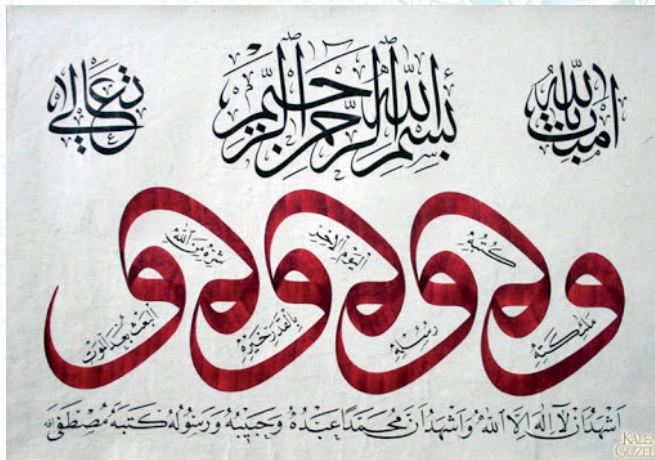 امنت بالله
بسم الله الرحمن الرحيم
تعالى
و ملئكته
و كتبه
و رسله
و اليوم الاخر
و بالقدر خيره
و شره من الله
و البعث بعد الموت
اشهد ان لا اله الا الله واشهد ان محمدا عبده وحبيبه ورسوله كتبه مصطفى
KALEM
GÜZELİ